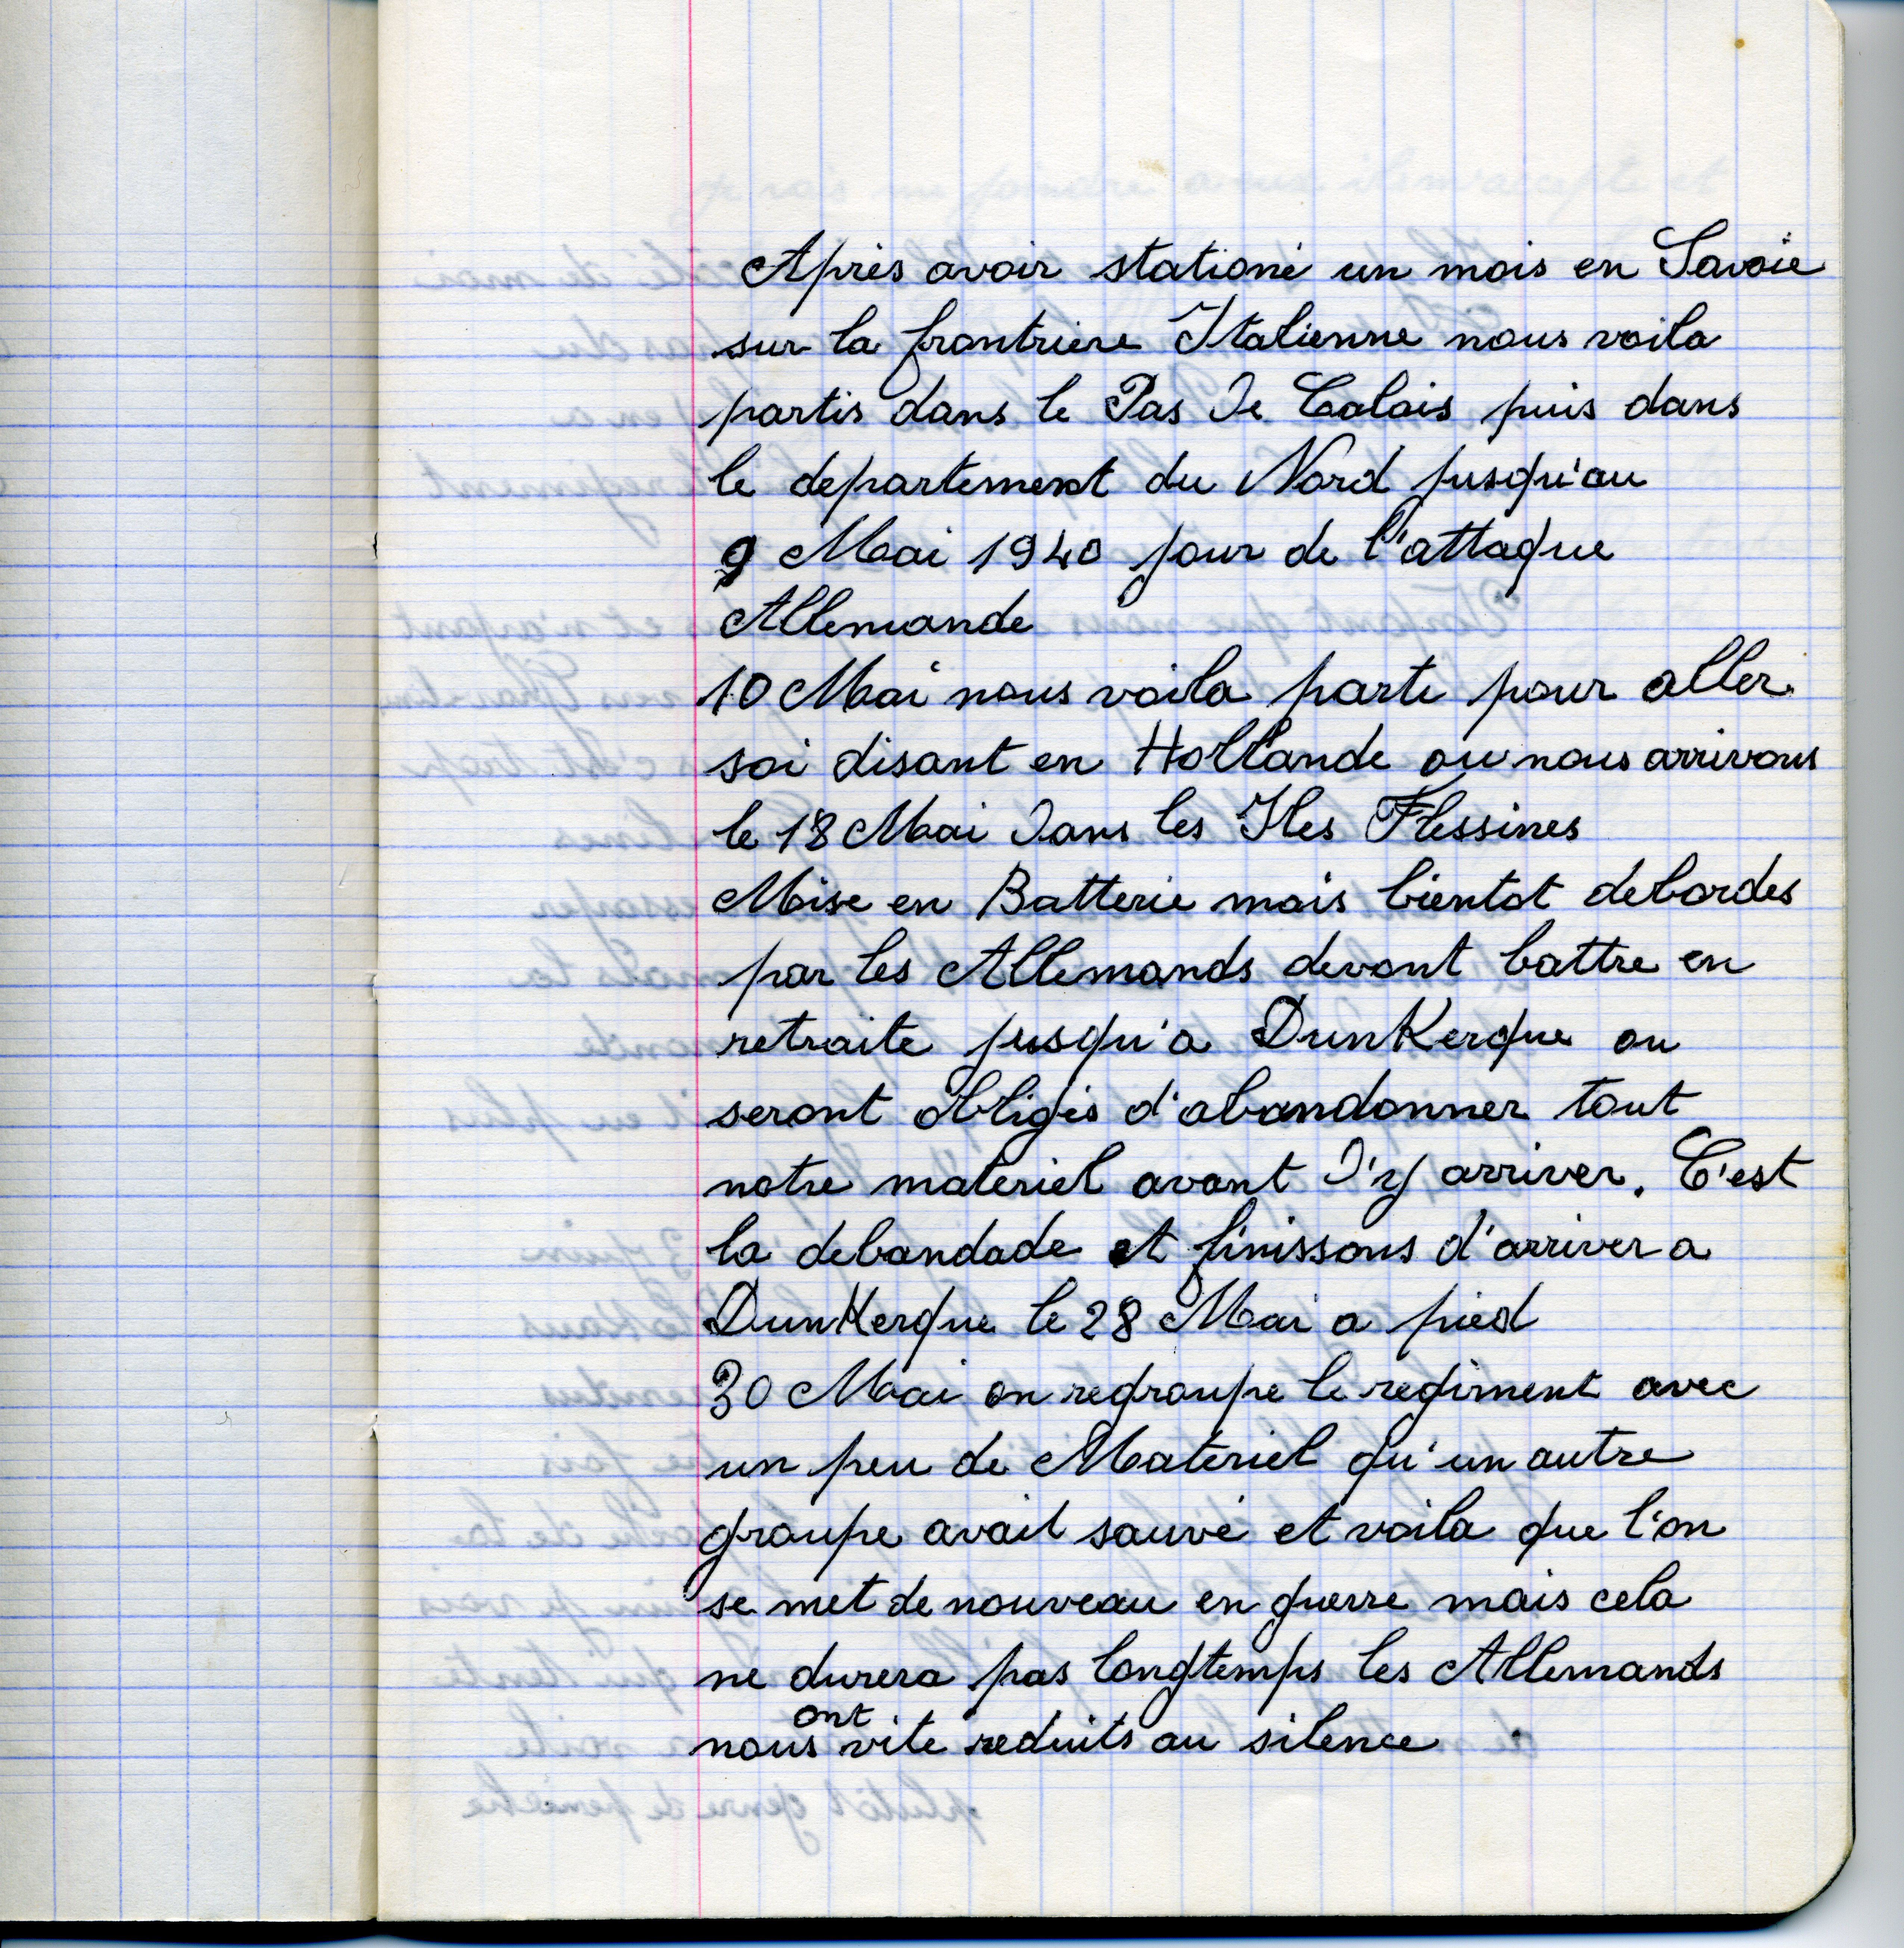 Après avoir stationé un mois en Savoie
sur la frontriere Italienne nous voila
partis dans le Pas De Calais puis dans
le departement du Nord jusqu'au
9 Mai 1940 jour de l'attaque
Allemande
10 Mai nous voila parti pour aller
soi disant en Hollande ou nous arrivons
le 18 Mai Dans les Iles Flessines
Mise en Batterie mais bientot debordes
par les Allemands devont battre en
retraite jusqu'a DunKerque ou
seront obligés d'abandonner tout
notre materiel avant D'y arriver. C'est
la debandade et finissons d'arriver a
DunKerque le 28 Mai a pied
30 Mai on regroupe le regiment avec
un peu de Materiel qu'un autre
groupe avait sauvé et voila que l'on
se met de nouveau en guerre mais cela
ne durera pas longtemps les Allemands
nous ont vite reduits au silence